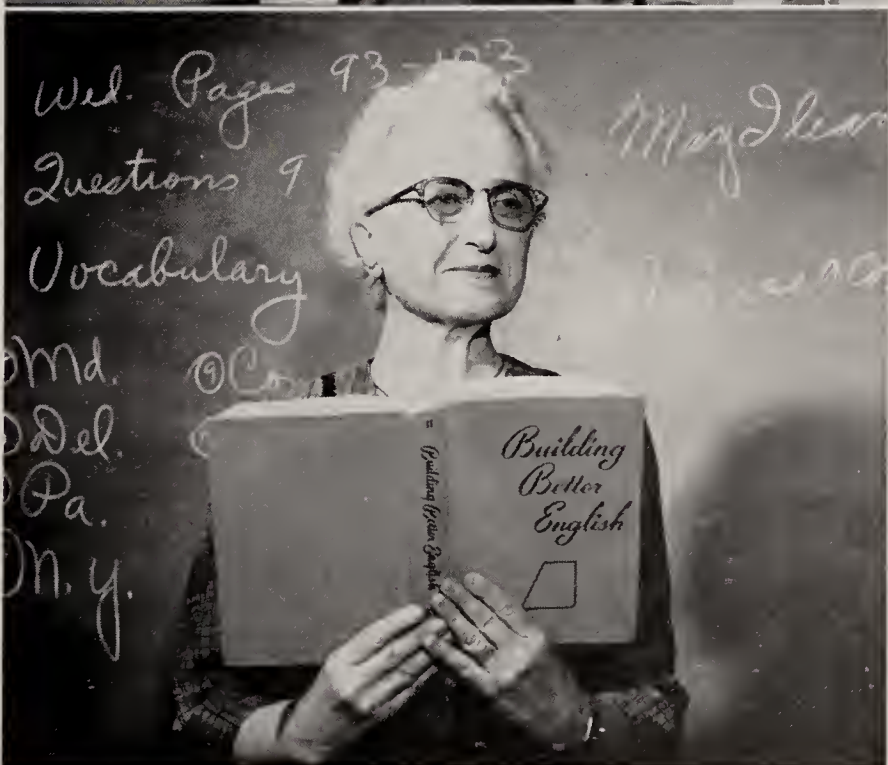 Wed. Pages 93-103
Questions 9
Vocabulary
Md.
Del.
Pa.
N.Y.
May I
Building Better English
Building
Better
English